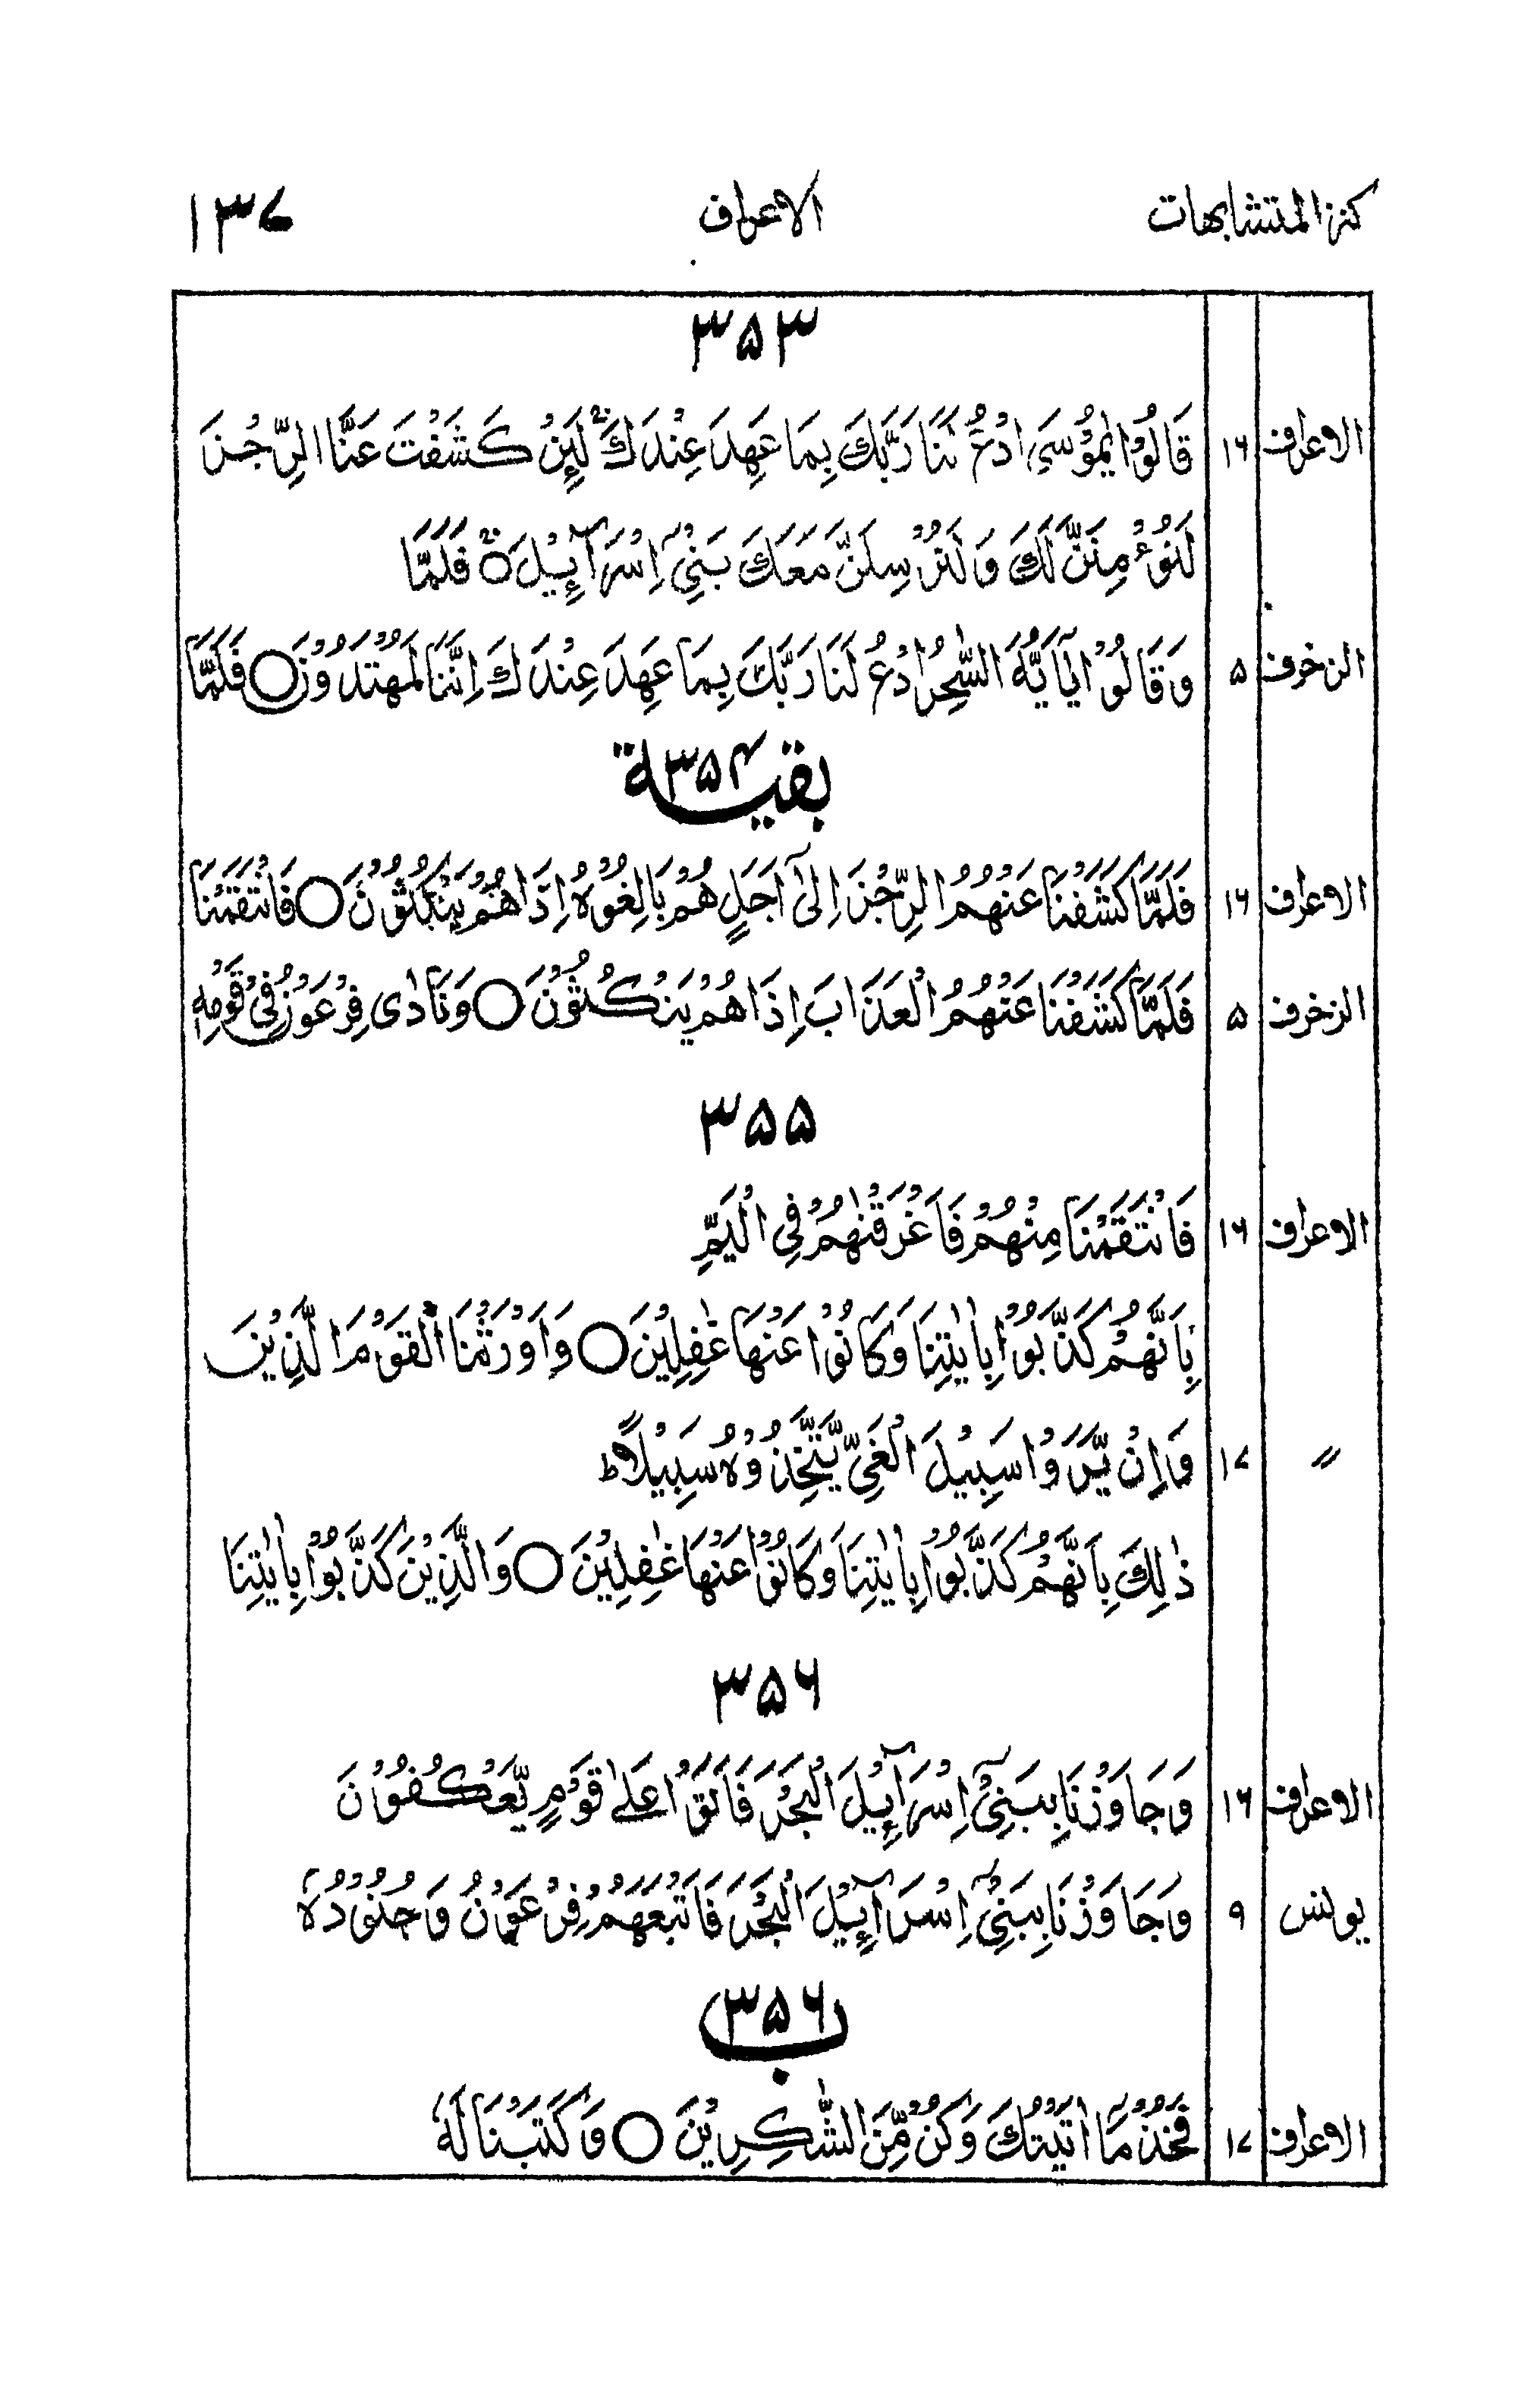 كنز المتشابهات الاعراف ۱۳۷
۳۵۳
الاعراف ۱۶ قَالُوْا يٰمُوْسَى ادْعُ لَنَا رَبَّكَ بِمَا عَهِدَ عِنْدَكَ ۚ لَئِنْ كَشَفْتَ عَنَّا الرِّجْزَ
لَنُؤْمِنَنَّ لَكَ وَلَنُرْسِلَنَّ مَعَكَ بَنِىْٓ اِسْرَآئِيْلَ ۚ فَلَمَّا
الزخرف ۵ وَقَالُوْا يٰٓاَيُّهَ السّٰحِرُ ادْعُ لَنَا رَبَّكَ بِمَا عَهِدَ عِنْدَكَ اِنَّنَا لَمُهْتَدُوْنَ ○ فَلَمَّا
بقية ۳۵۴
الاعراف ۱۶ فَلَمَّا كَشَفْنَا عَنْهُمُ الرِّجْزَ اِلٰٓى اَجَلٍ هُمْ بَالِغُوْهُ اِذَا هُمْ يَنْكُثُوْنَ ○ فَانْتَقَمْنَا
الزخرف ۵ فَلَمَّا كَشَفْنَا عَنْهُمُ الْعَذَابَ اِذَا هُمْ يَنْكُثُوْنَ ○ وَنَادٰى فِرْعَوْنُ فِىْ قَوْمِهٖ
۳۵۵
الاعراف ۱۶ فَانْتَقَمْنَا مِنْهُمْ فَاَغْرَقْنٰهُمْ فِى الْيَمِّ
بِاَنَّهُمْ كَذَّبُوْا بِاٰيٰتِنَا وَكَانُوْا عَنْهَا غٰفِلِيْنَ ○ وَاَوْرَثْنَا الْقَوْمَ الَّذِيْنَ
〃 ۱۷ وَاِنْ يَّرَوْا سَبِيْلَ الْغَىِّ يَتَّخِذُوْهُ سَبِيْلًا ؕ
ذٰلِكَ بِاَنَّهُمْ كَذَّبُوْا بِاٰيٰتِنَا وَكَانُوْا عَنْهَا غٰفِلِيْنَ ○ وَالَّذِيْنَ كَذَّبُوْا بِاٰيٰتِنَا
۳۵۶
الاعراف ۱۶ وَجَاوَزْنَا بِبَنِىْٓ اِسْرَآئِيْلَ الْبَحْرَ فَاَتَوْا عَلٰى قَوْمٍ يَّعْكُفُوْنَ
يونس ۹ وَجَاوَزْنَا بِبَنِىْٓ اِسْرَآئِيْلَ الْبَحْرَ فَاَتْبَعَهُمْ فِرْعَوْنُ وَجُنُوْدُهٗ
۳۵۶ ب
الاعراف ۱۷ فَخُذْ مَآ اٰتَيْتُكَ وَكُنْ مِّنَ الشّٰكِرِيْنَ ○ وَكَتَبْنَا لَهٗ